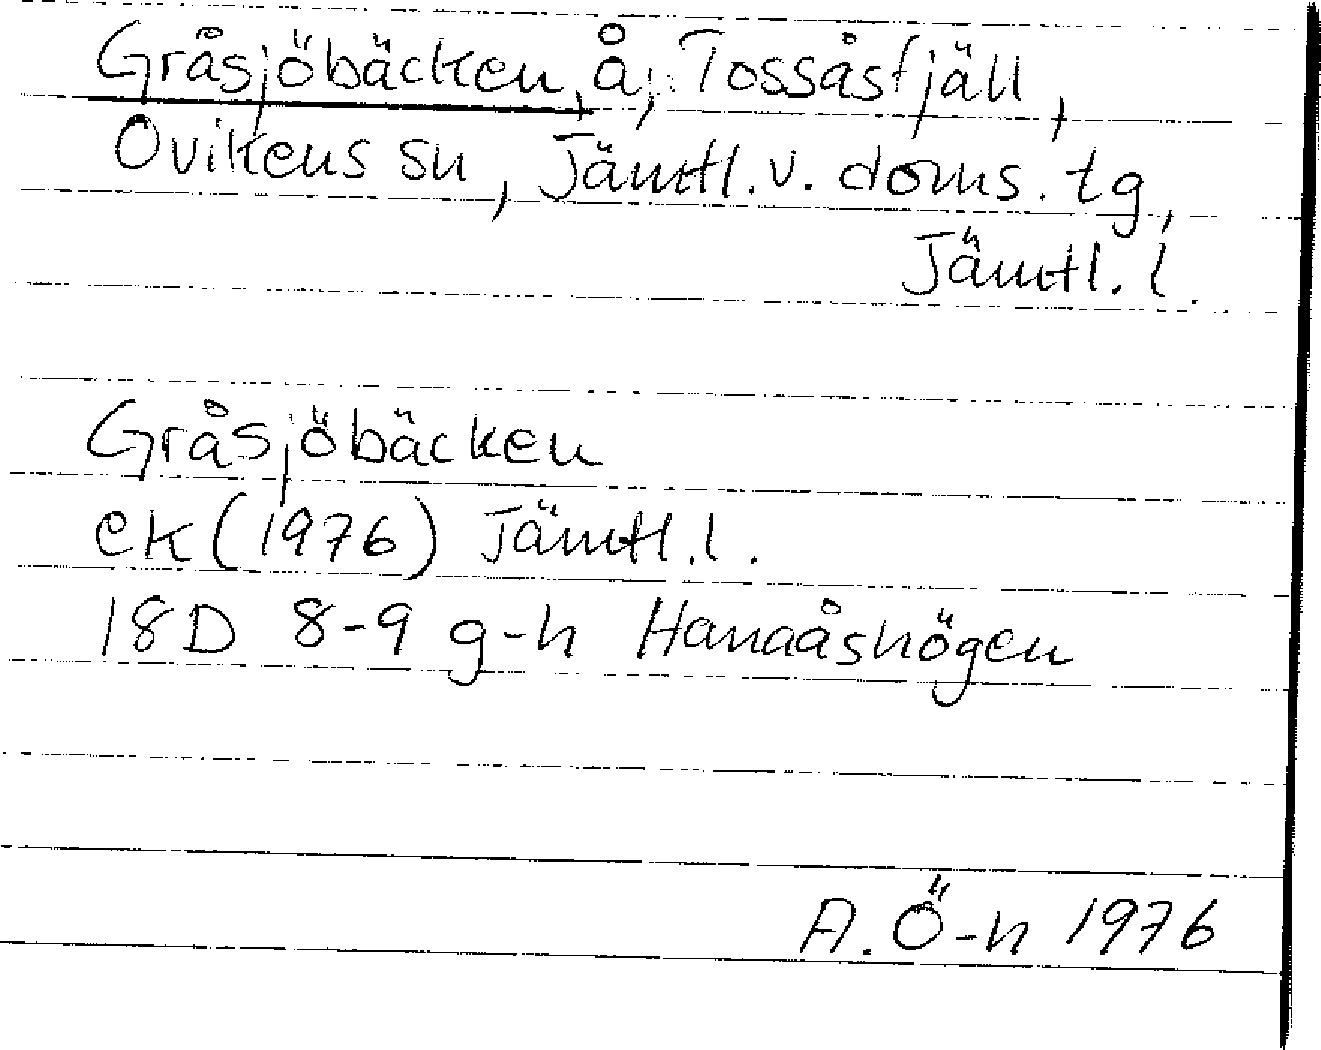 Gråsjöbäcken, å, Tossåsfjäll,
Ovikens sn, Jämtl. v. doms. tg,
Jämtl. l.
Gråsjöbäcken
ek (1976) Jämtl. l.
18D 8-9 g-h Hanaåshögen
A. Ö-n 1976